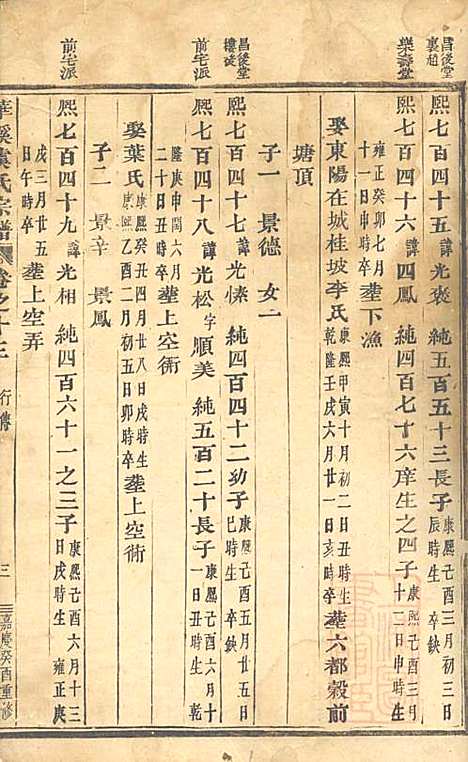 昌後堂裏起
熙七百四十五諱光褒 純五百五十三長子康熙己酉三月初三日辰時生 卒缺
樂壽堂
熙七百四十六諱四鳳 純四百七十六庠生之四子康熙己酉三月十二日申時生
雍正癸卯七月十一日申時卒 塟下漁
娶東陽在城桂坡李氏康熙甲寅十月初二日丑時生乾隆壬戌六月廿一日亥時卒 塟六都榖前
塘頂
子一 景德 女一
昌後堂樓後
熙七百四十七諱光愫 純四百四十二幼子康熙己酉五月廿五日巳時生 卒缺
前宅派
熙七百四十八諱光松字順美 純五百二十長子康熙己酉六月十一日丑時生 乾
隆庚申閏六月二十日丑時卒 塟上空術
娶葉氏康熙癸丑四月廿八日戌時生乙酉二月初五日卯時卒 塟上空術
子二 景辛 景鳳
前宅派
熙七百四十九諱光相 純四百六十一之三子康熙己酉六月十三日戌時生 雍正庚
戌三月廿五日午時卒 塟上空弄
華溪虞氏宗譜 卷之十三 行傳 三 嘉慶癸酉重修